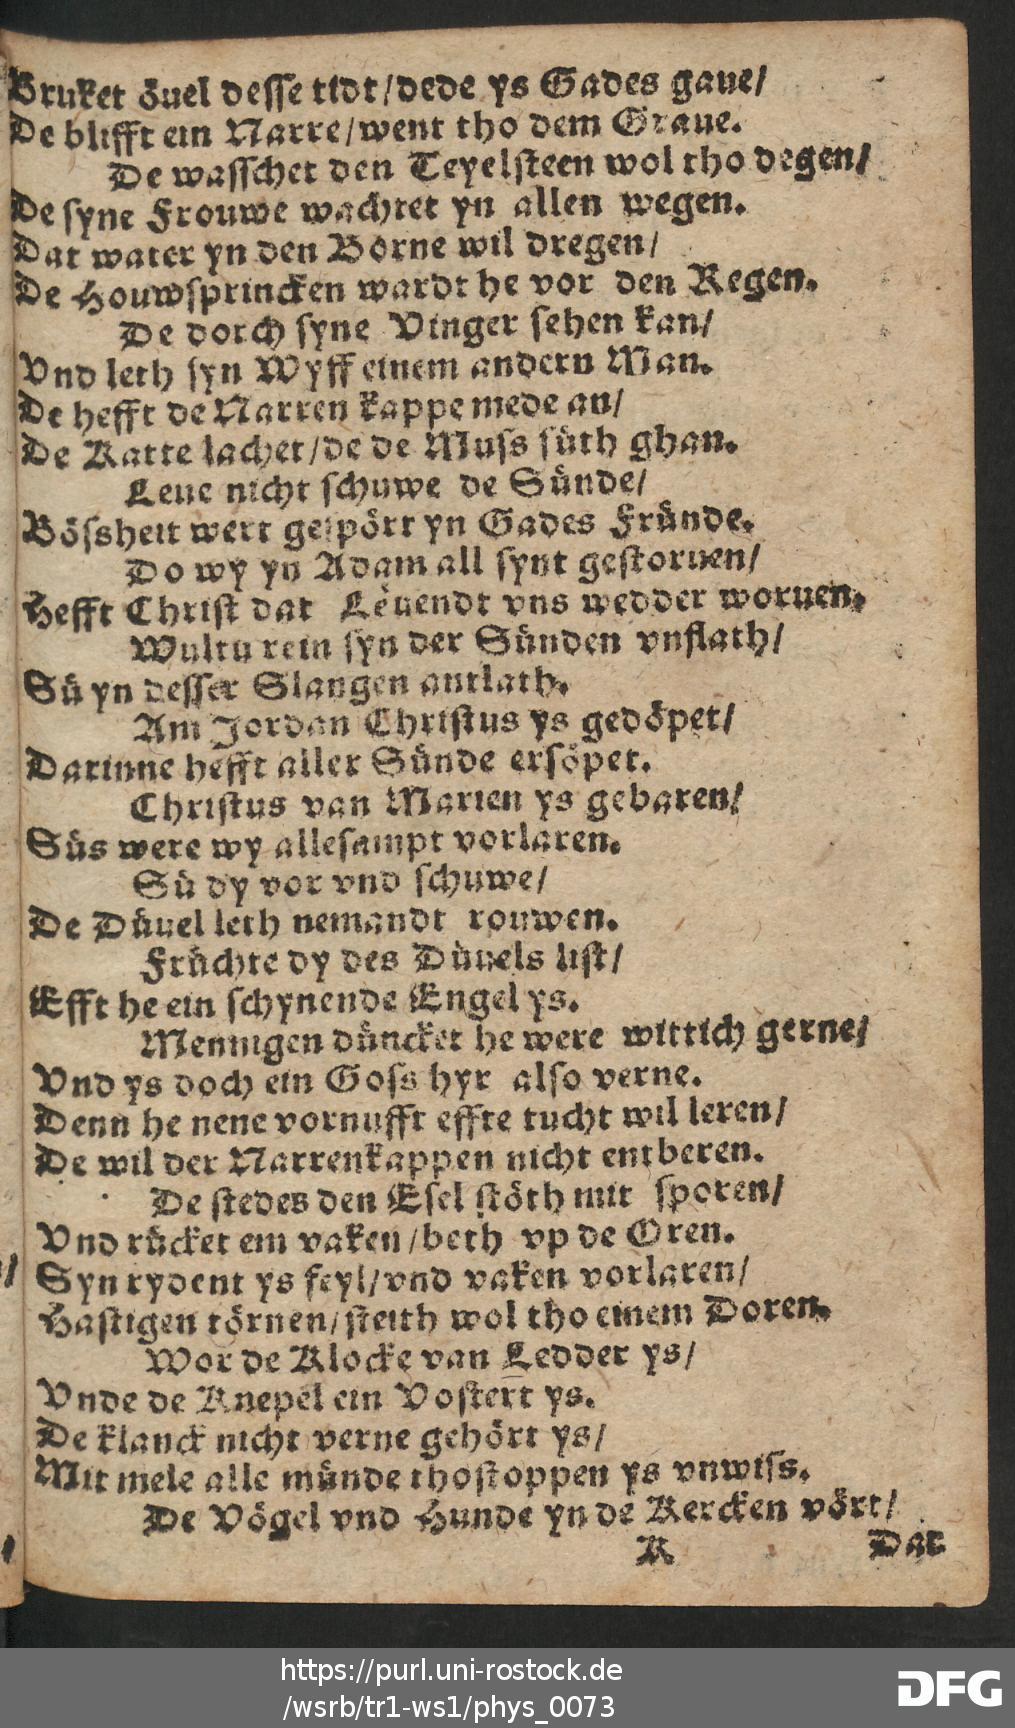 Bruket öuel desse tidt/dede ys Gades gaue/
De blifft ein Narre/went tho dem Graue.
De wasschet den Teyelsteen wol tho degen/
De syne Frouwe wachtet yn allen wegen.
Dat water yn den Borne wil dregen/
De Houwsprincken wardt he vor den Regen.
De dorch syne Vinger sehen kan/
Vnd leth syn Wyff einem andern Man.
De hefft de Narren kappe mede an/
De Katte lachet/de de Muss süth ghan.
Leue nicht schuwe de Sünde/
Bössheit wert gespört yn Gades Fründe.
Do wy yn Adam all synt gestoruen/
Hefft Christ dat Leuendt vns wedder woruen.
Wultu rein syn der Sünden vnflath/
Sü yn desser Slangen antlath.
Am Jordan Christus ys gedöpet/
Darinne hefft aller Sünde ersöpet.
Christus van Marien ys gebaren/
Süs were wy allesampt vorlaren.
Sü dy vor vnd schuwe/
De Düuel leth nemandt rouwen.
Früchte dy des Düuels list/
Efft he ein schynende Engel ys.
Mennigen düncket he were wittich gerne/
Vnd ys doch ein Goss hyr also verne.
Denn he nene vornufft effte tucht wil leren/
De wil der Narrenkappen nicht entberen.
De stedes den Esel stöth mit sporen/
Vnd rücket em vaken/beth vp de Oren.
Syn rydent ys feyl/vnd vaken vorlaren/
Hastigen törnen/steith wol tho einem Doren.
Wor de Klocke van Ledder ys/
Vnde de Knepel ein Vostert ys.
De klanck nicht verne gehört ys/
Mit mele alle münde thostoppen ys vnwiss.
De Vögel vnd Hunde yn de Kercken vört/
K Dat
https://purl.uni-rostock.de
/wsrb/tr1-ws1/phys_0073
DFG